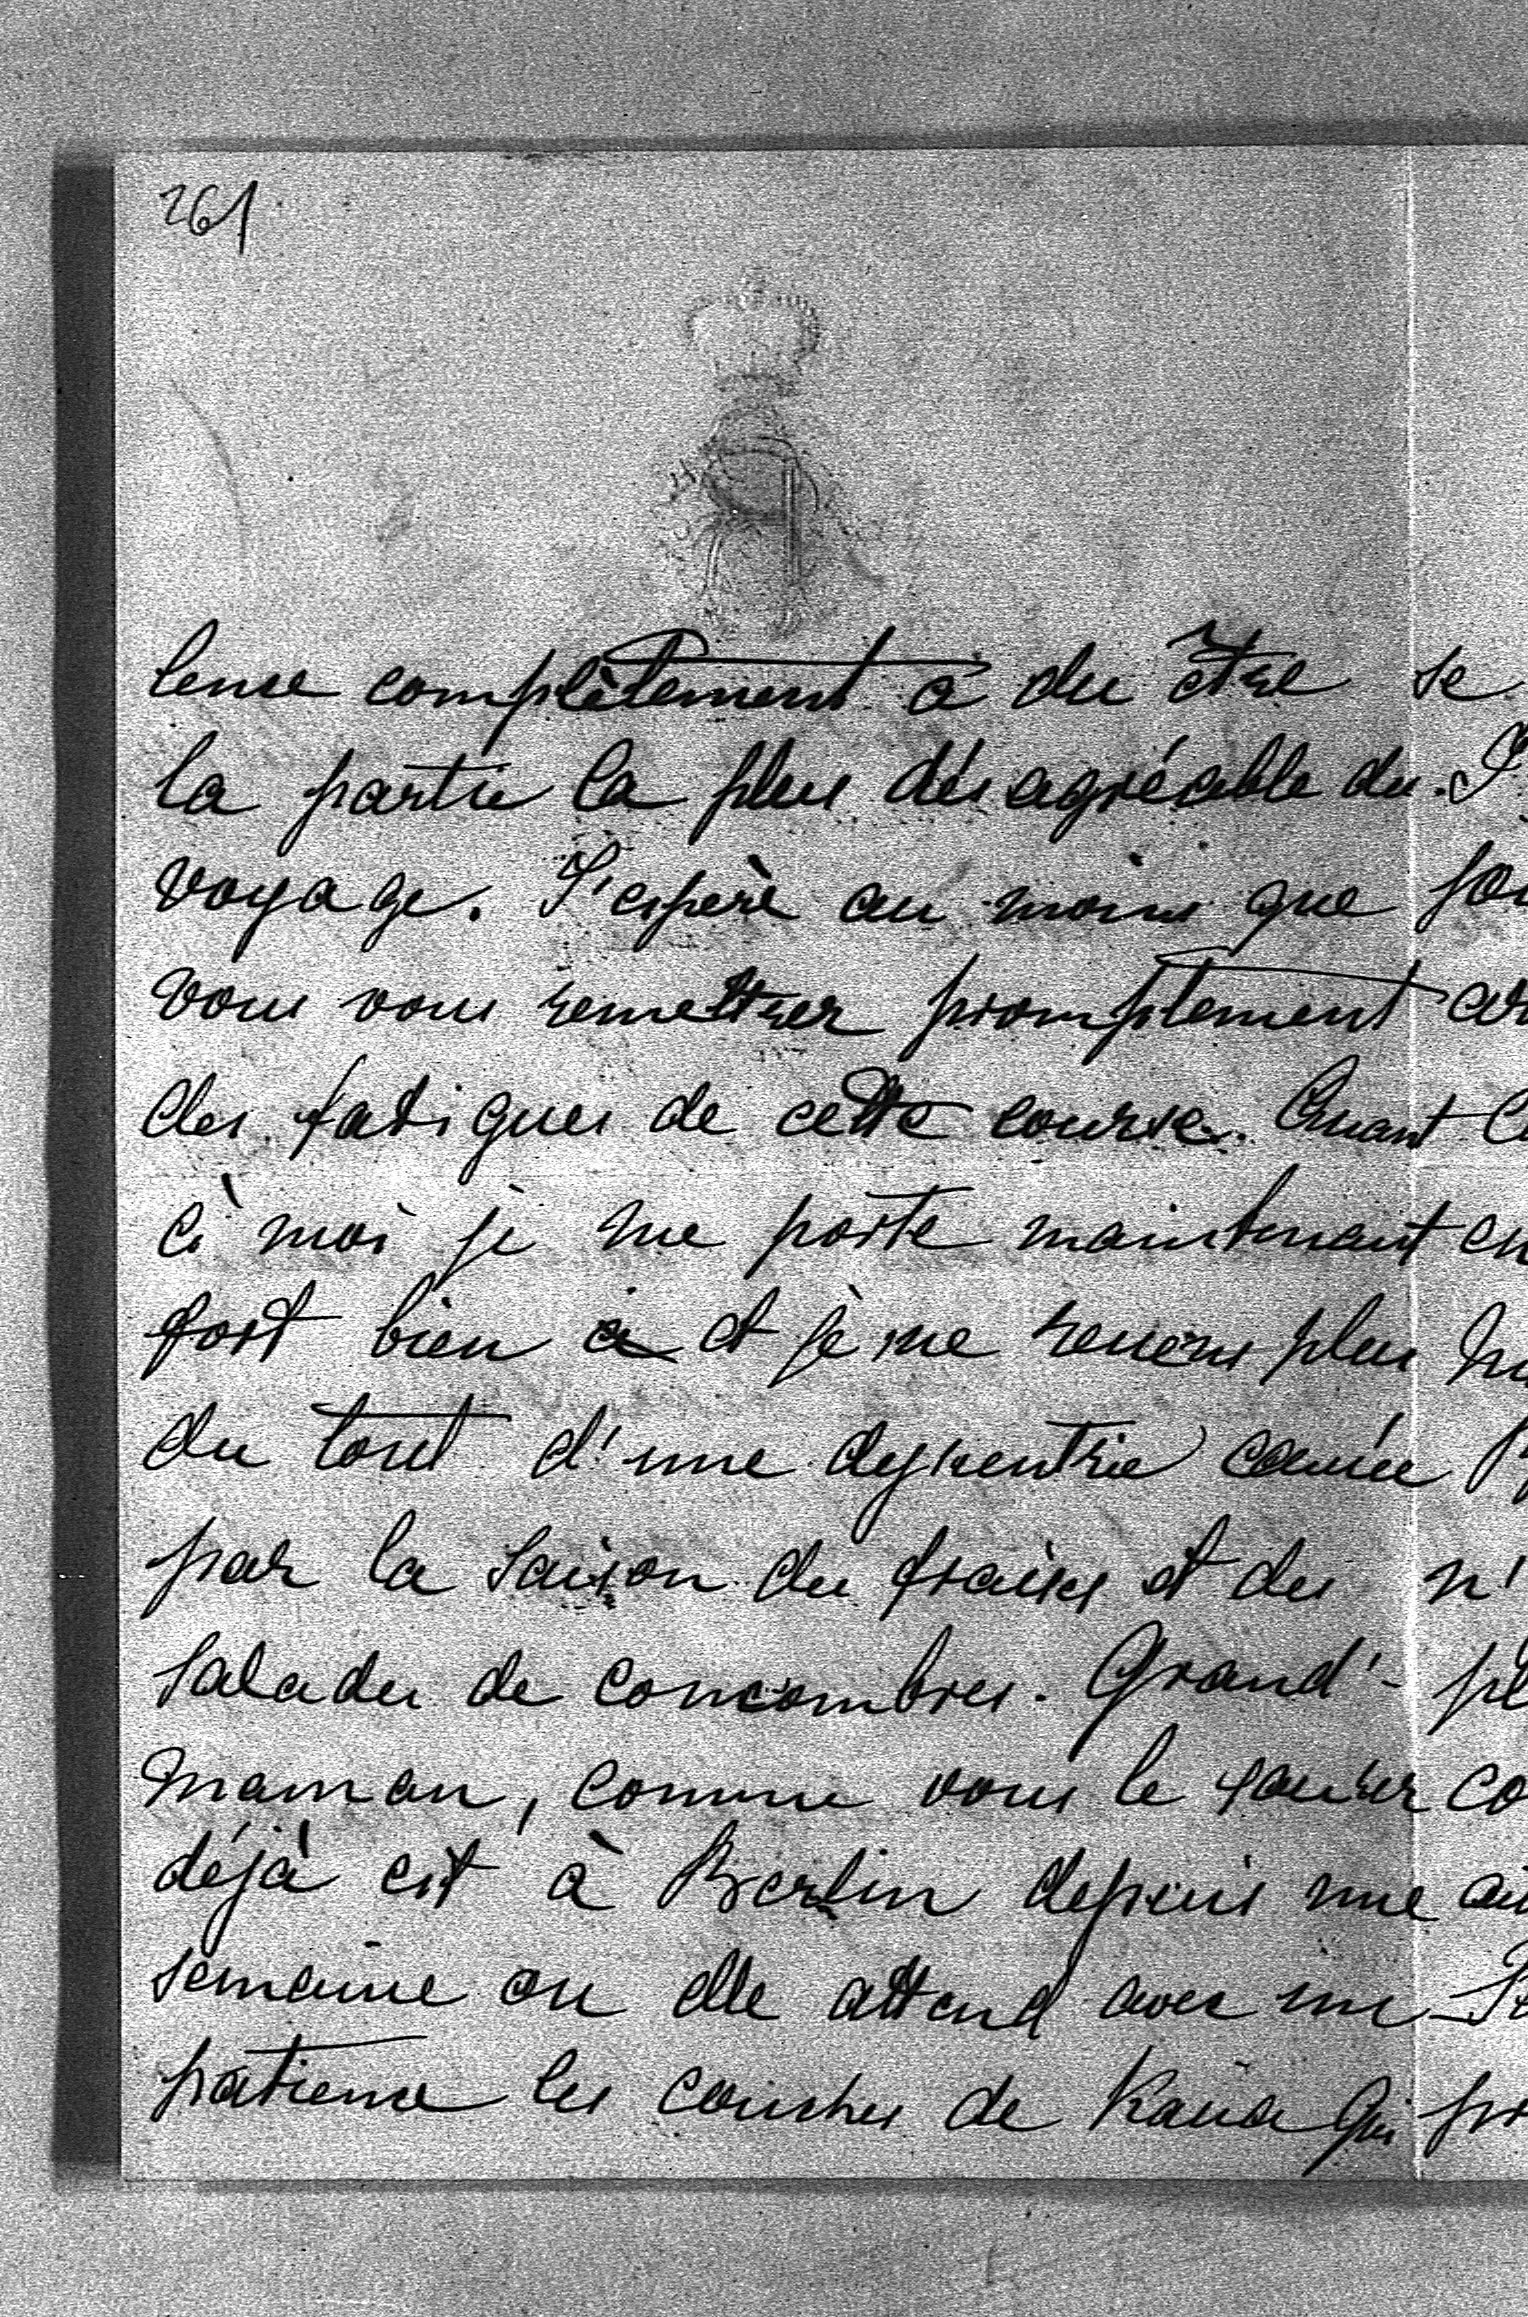 261
lense complètement a du être se
la partie la plus désagréable du
voyage. J'espère au moins que
vous vous remettrez promptement
des fatigues de cette course. Quant
à moi je me porte maintenant en
fort bien et je ne seuens plus
du tout d'une dysenterie causée
par la saison des fraises et des n'
salades de concombres. Grand'- pl
maman, comme vous le saurez co
déjà est à Berlin depuis une
semaine ou elle attend avec im-
patience les couches de Kaïsa qui